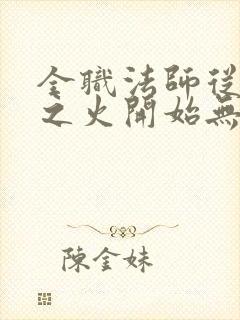 全職法師從
之火開始無
陳金妹